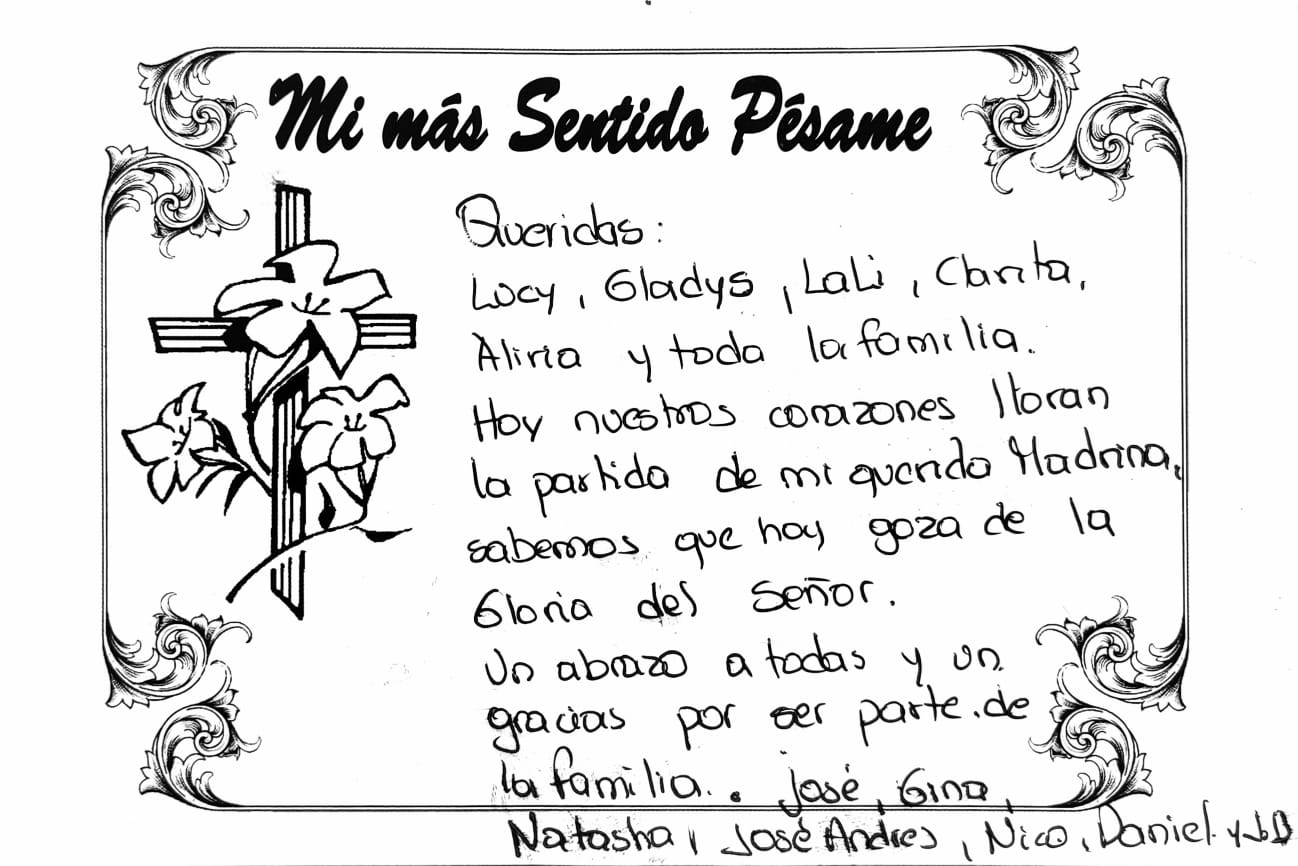 Mi más Sentido Pésame
Queridas:
Lucy, Gladys, Lali, Clarita,
Aliria y toda la familia.
Hoy nuestros corazones lloran
la partida de mi querida Madrina,
sabemos que hoy goza de la
Gloria del Señor.
Un abrazo a todas y un
gracias por ser parte de
la familia. José, Gina,
Natasha, José Andres, Nico, Daniel y JD